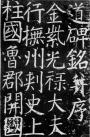 道碑銘并序
金紫光祿大夫
行撫州刺史上
柱國魯郡開國